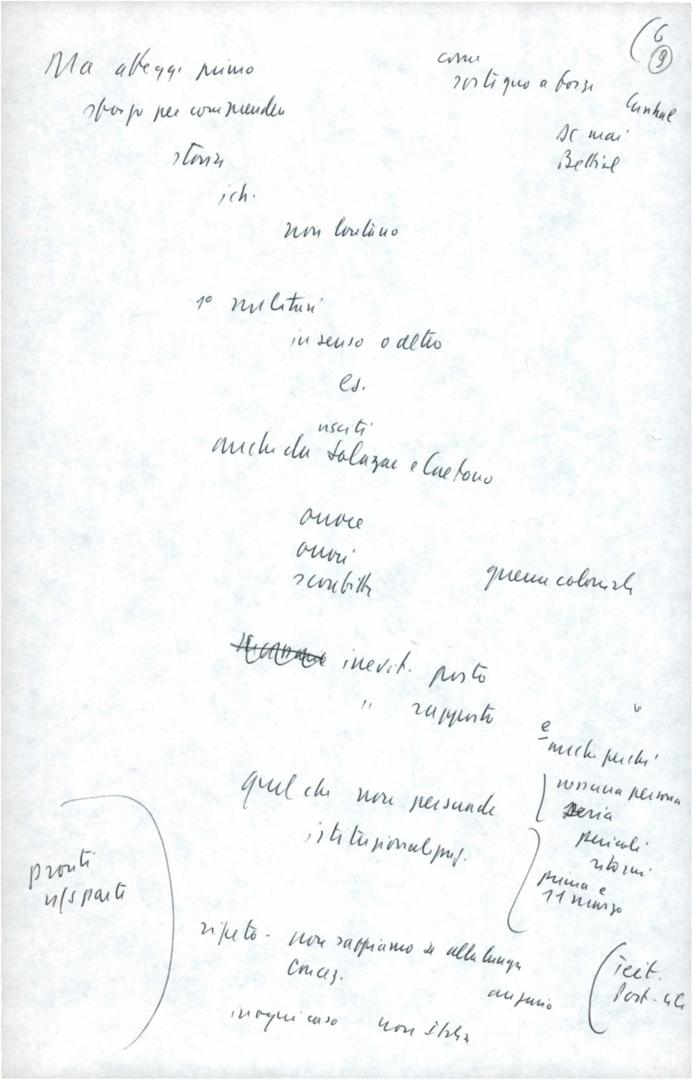 6
9
Ma atteggi primo
sforzo per comprendere
storia
ich.
non lontano
come
sostegno a forze
Cunhal
se mai
1° militari
in senso o altro
es.
usciti
anche da Salazar e Caetano
onore
onori
sconfitta
guerra coloniale
inevit. posto
" rapporto
e
anche perché
nessuna persona
seria
pericoli
ritorni
prima e
11 marzo
quel che non persuade
istituzional
pronti
n/s parte
ripeto - non sappiamo se alla lunga
in ogni caso non Italia